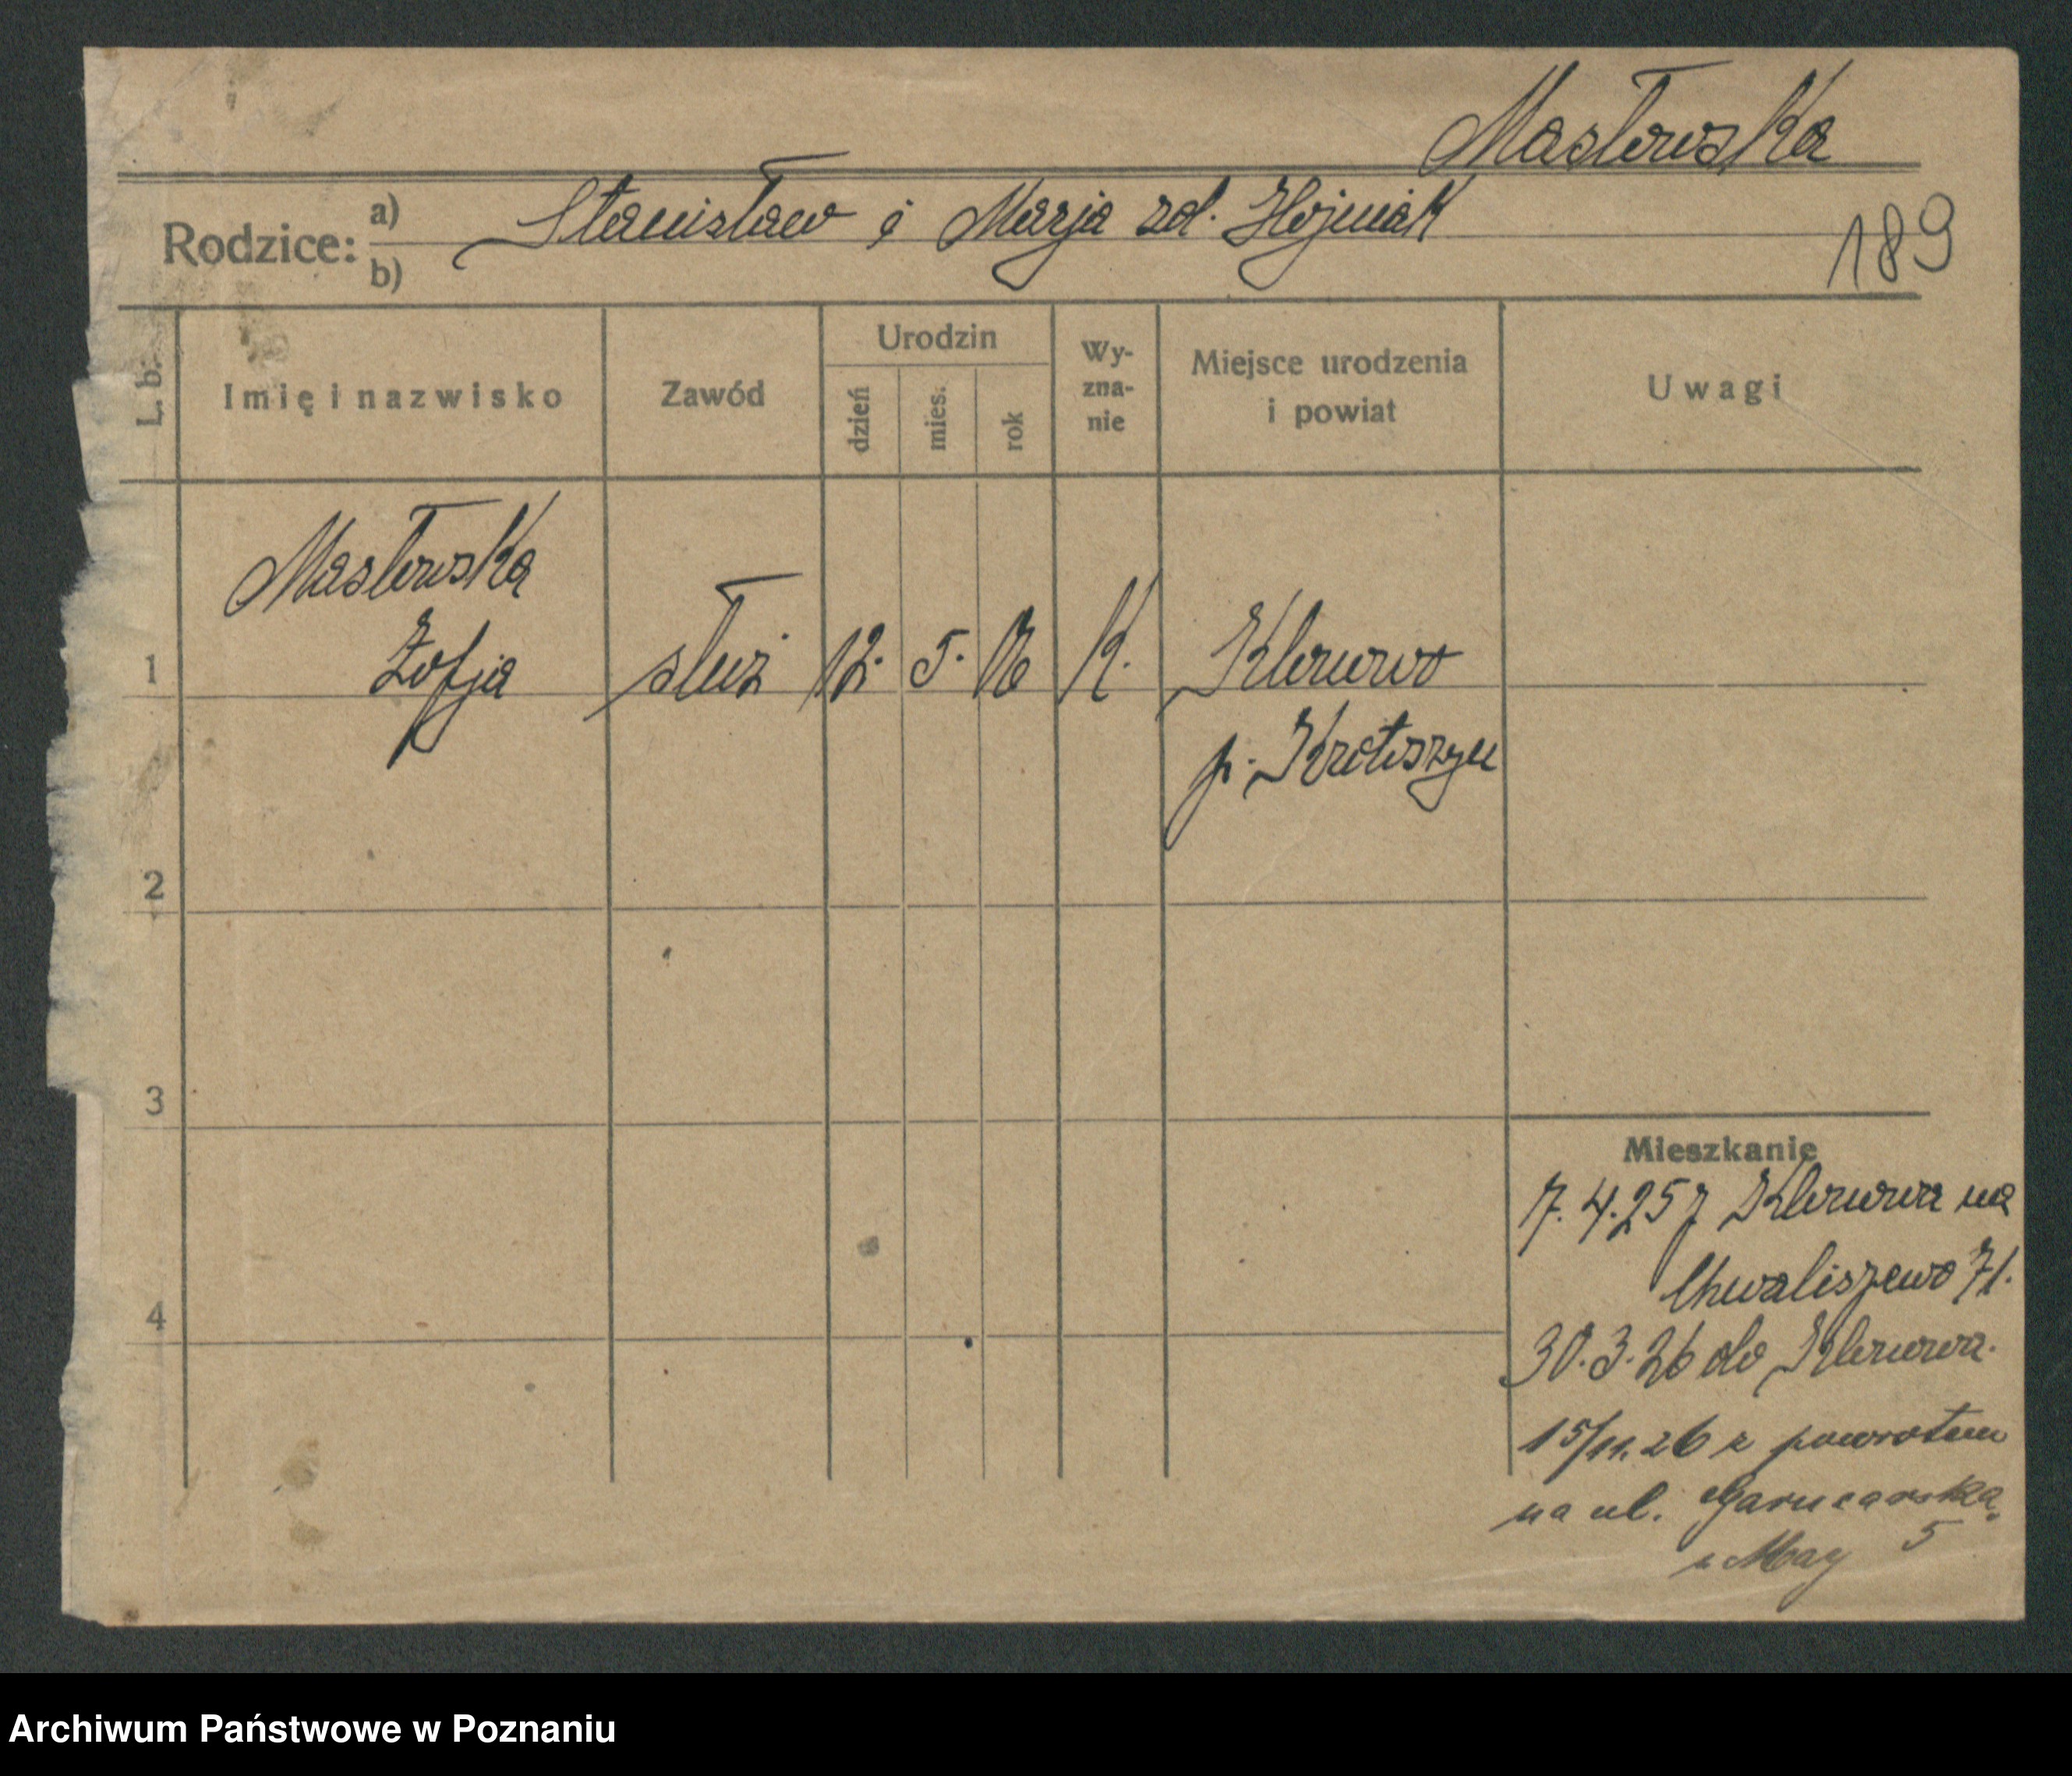 Masłowska
Rodzice: a) b) Stanisław i Marja zd. Hojniak
189
L. b. Imię i nazwisko Zawód Urodzin dzień mies. rok Wy-zna-nie Miejsce urodzenia i powiat Uwagi
Masłowska
1 Zofja służ 12. 5. 06 K.
p. Krotoszyn
2
3
Mieszkanie
7.4.25 z na
Chwaliszewo 71.
4
30.3.26 do
15/11.26 z powrotem
na ul. Garncarska
5
Archiwum Państwowe w Poznaniu